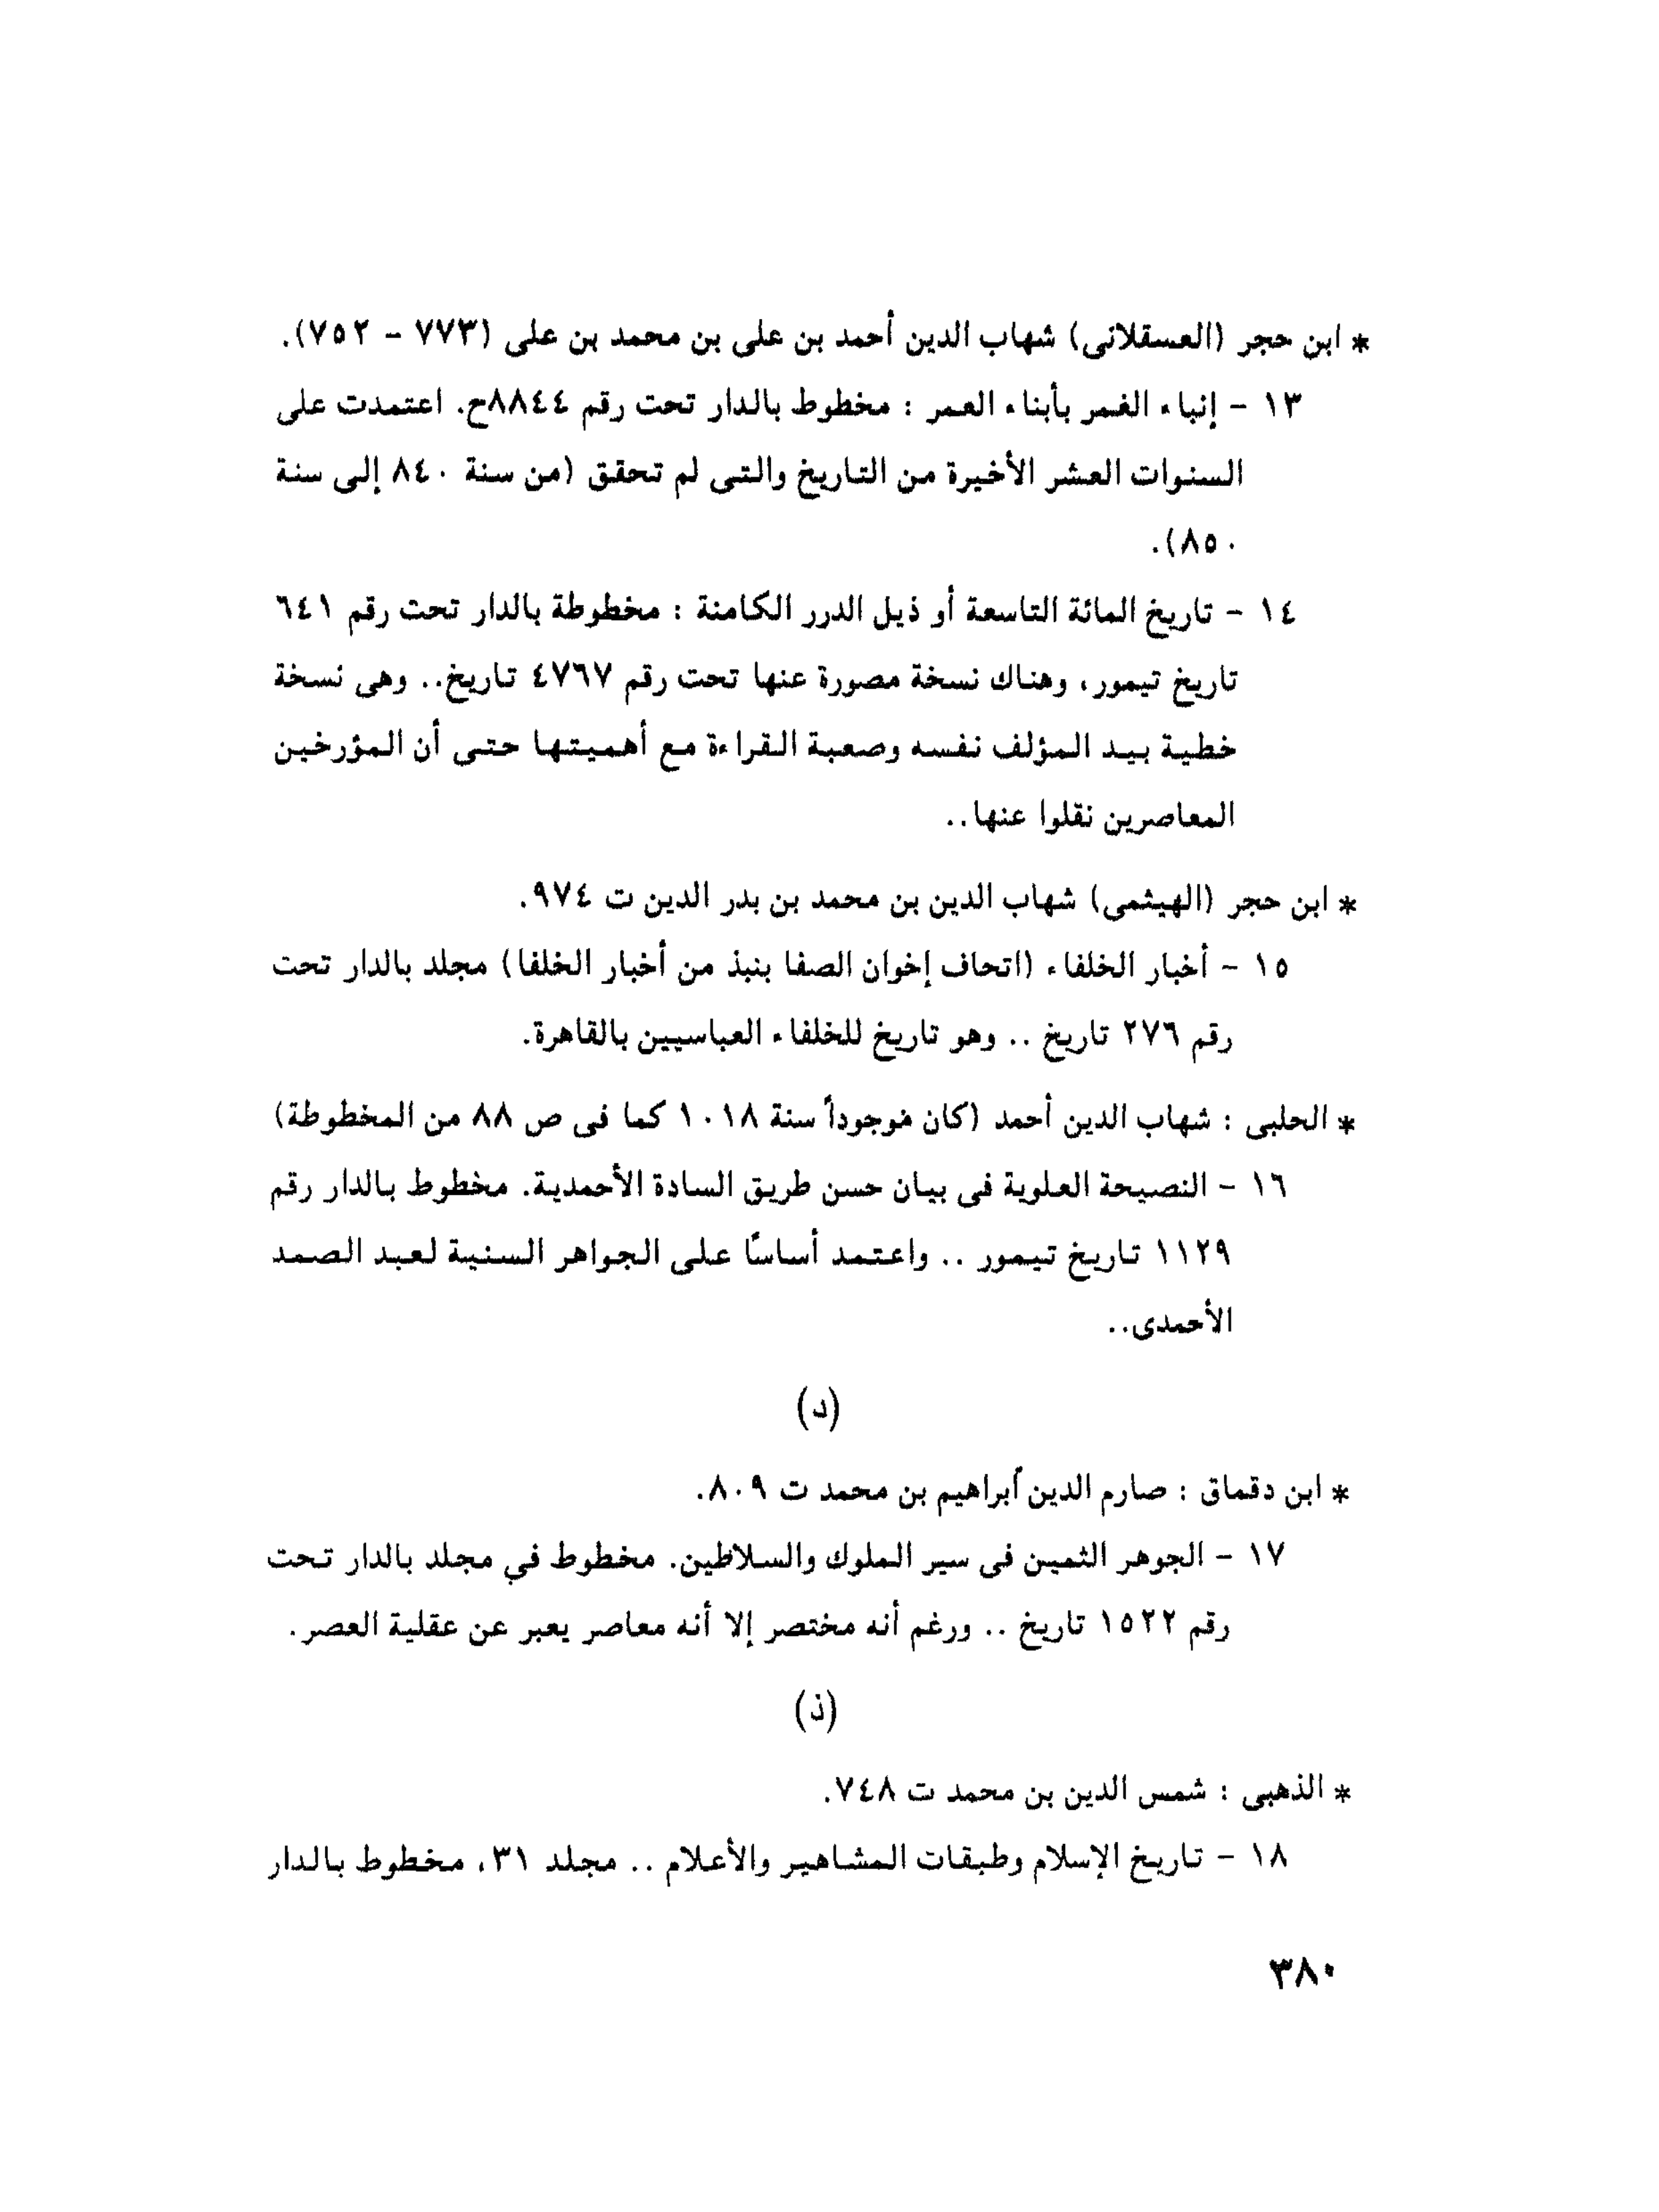 * ابن حجر (العسقلانى) شهاب الدين أحمد بن على بن محمد بن على (٧٧٣ - ٧٥٢).
١٣ - إنباء الغمر بأبناء العمر : مخطوط بالدار تحت رقم ٨٨٤٤ح. اعتمدت على
السنوات العشر الأخيرة من التاريخ والتى لم تحقق (من سنة ٨٤٠ إلى سنة
٨٥٠).
١٤ - تاريخ المائة التاسعة أو ذيل الدرر الكامنة : مخطوطة بالدار تحت رقم ٦٤١
تاريخ تيمور، وهناك نسخة مصورة عنها تحت رقم ٤٧٦٧ تاريخ.. وهى نسخة
خطية بيد المؤلف نفسه وصعبة القراءة مع أهميتها حتى أن المؤرخين
المعاصرين نقلوا عنها..
* ابن حجر (الهيثمى) شهاب الدين بن محمد بن بدر الدين ت ٩٧٤.
١٥ - أخبار الخلفاء (اتحاف إخوان الصفا بنبذ من أخبار الخلفا) مجلد بالدار تحت
رقم ٢٧٦ تاريخ .. وهو تاريخ للخلفاء العباسيين بالقاهرة.
* الحلبى : شهاب الدين أحمد (كان موجوداً سنة ١٠١٨ كما فى ص ٨٨ من المخطوطة)
١٦ - النصيحة العلوية فى بيان حسن طريق السادة الأحمدية. مخطوط بالدار رقم
١١٢٩ تاريخ تيمور .. واعتمد أساسًا على الجواهر السنية لعبد الصمد
الأحمدى..
(د)
* ابن دقماق : صارم الدين أبراهيم بن محمد ت ٨٠٩.
١٧ - الجوهر الثمين فى سير الملوك والسلاطين. مخطوط في مجلد بالدار تحت
رقم ١٥٢٢ تاريخ .. ورغم أنه مختصر إلا أنه معاصر يعبر عن عقلية العصر.
(ذ)
* الذهبى : شمس الدين بن محمد ت ٧٤٨.
١٨ - تاريخ الإسلام وطبقات المشاهير والأعلام .. مجلد ٣١، مخطوط بالدار
٣٨٠